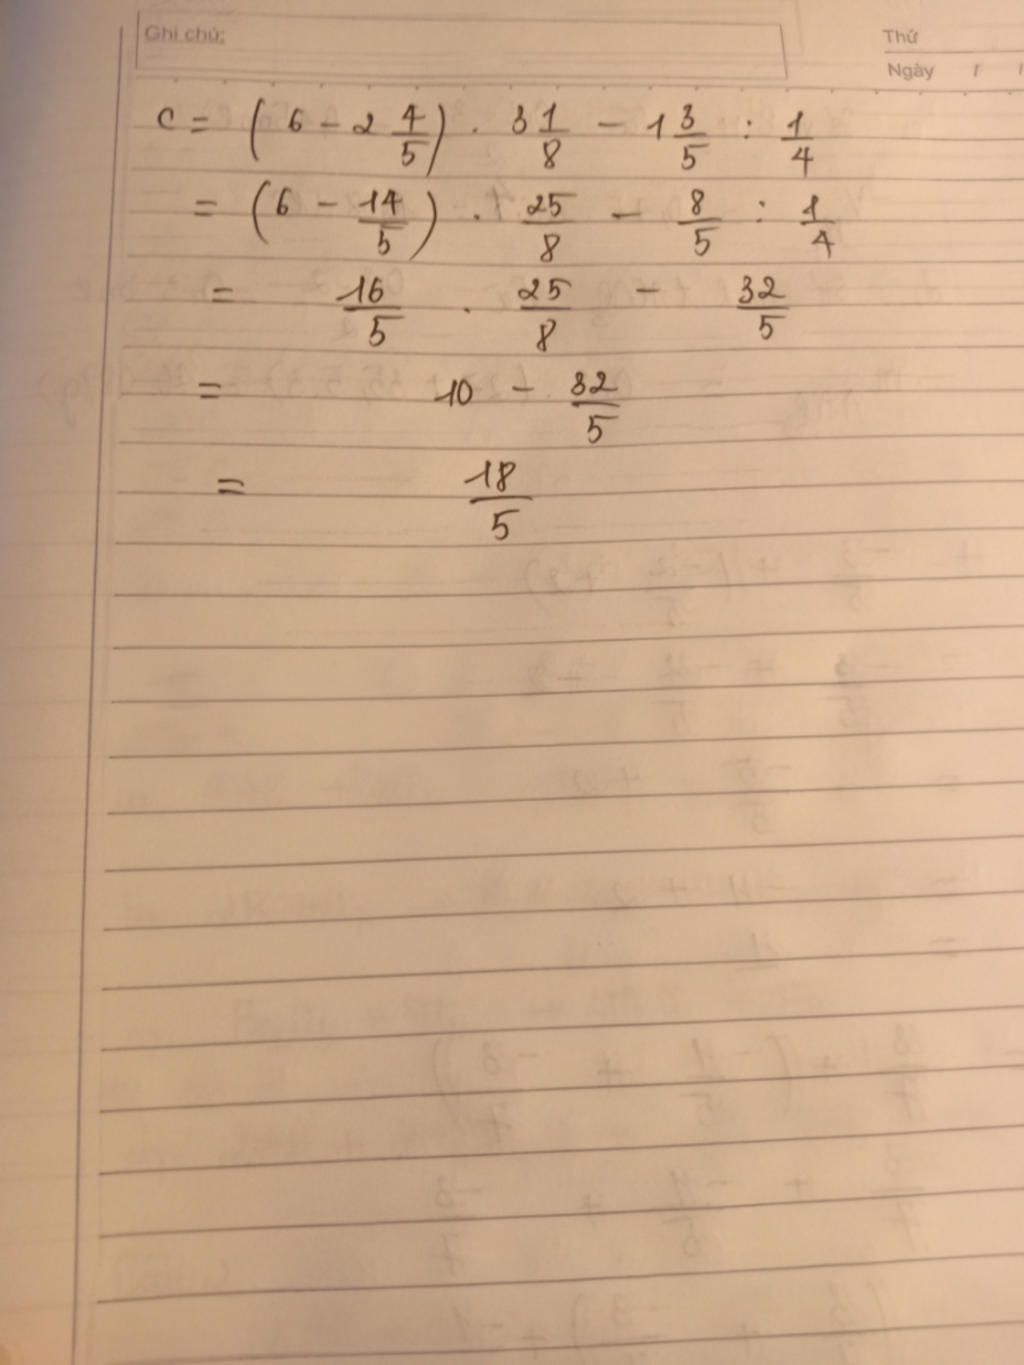 Ghi chú:
Thứ
Ngày / /
C = (6 - 2 4/5) . 3 1/8 - 1 3/5 : 1/4
= (6 - 14/5) . 25/8 - 8/5 : 1/4
= 16/5 . 25/8 - 32/5
= 10 - 32/5
= 18/5